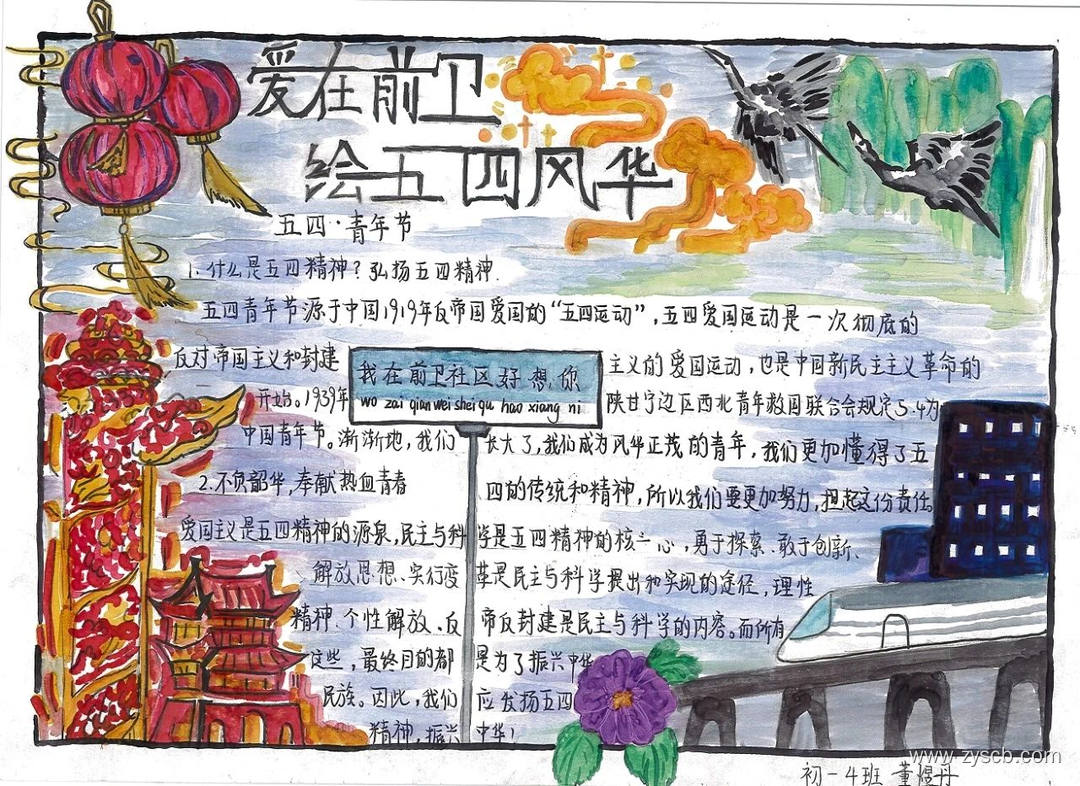 爱在前卫
绘五四风华
五四·青年节
1.什么是五四精神?弘扬五四精神.
五四青年节源于中国1919年反帝国爱国的“五四运动”,五四爱国运动是一次彻底的
反对帝国主义和封建主义的爱国运动,也是中国新民主主义革命的
开始。1939年陕甘宁边区西北青年救国联合会规定5.4为
中国青年节。渐渐地,我们长大了,我们成为风华正茂的青年,我们更加懂得了五
四的传统和精神,所以我们要更加努力,担起这份责任。
我在前卫社区好想你
wo zai qian wei shei qu hao xiang ni
2.不负韶华,奉献热血青春
爱国主义是五四精神的源泉,民主与科学是五四精神的核心,勇于探索、敢于创新、
解放思想、实行变革是民主与科学提出和实现的途径,理性
精神、个性解放、反帝反封建是民主与科学的内容。而所有
这些,最终目的都是为了振兴中华
民族。因此,我们应发扬五四
精神,振兴中华!
www.zyscb.com
初一4班 董煜丹